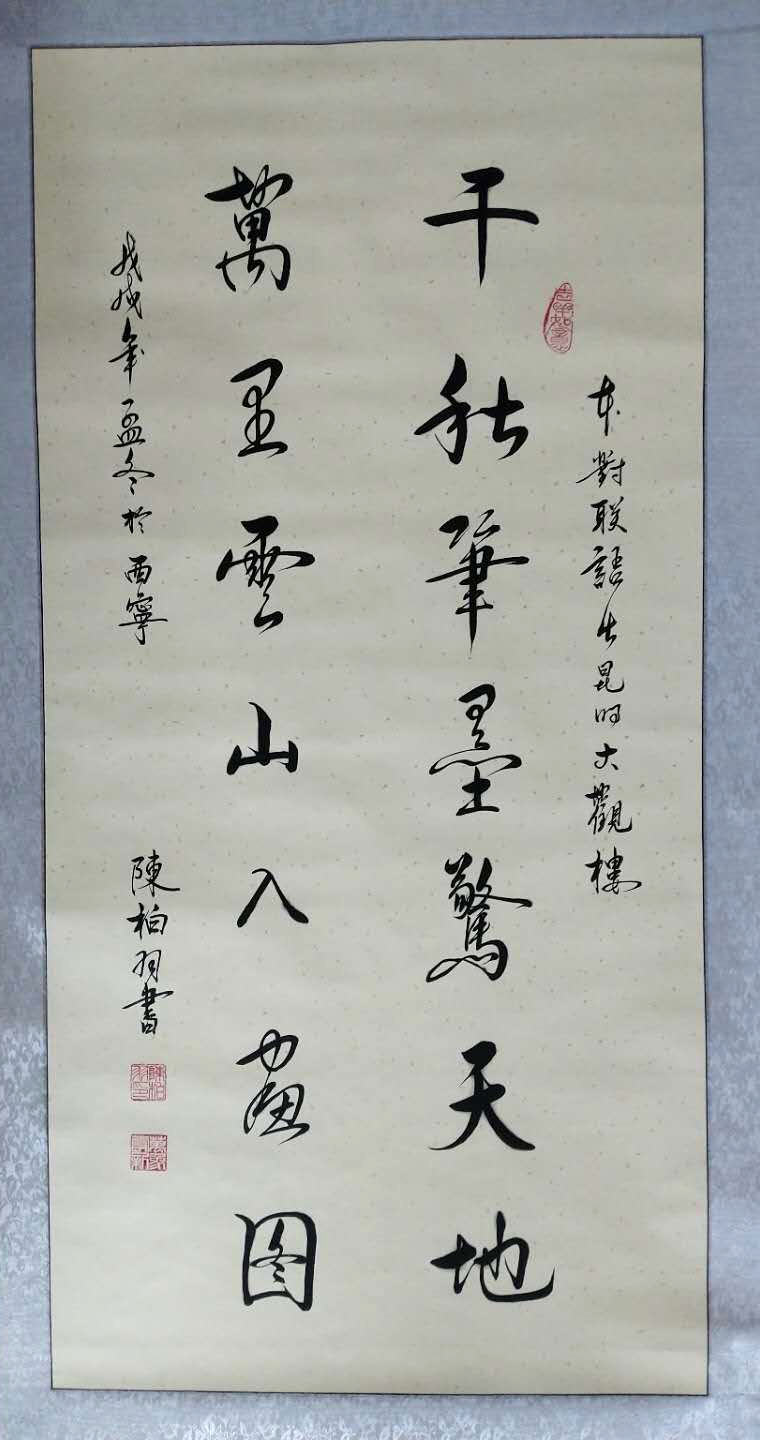 千秋筆墨驚天地
本對联語出昆明大觀樓
萬里雲山入畫图
戊戌年孟冬於西寧
陳柏羽書